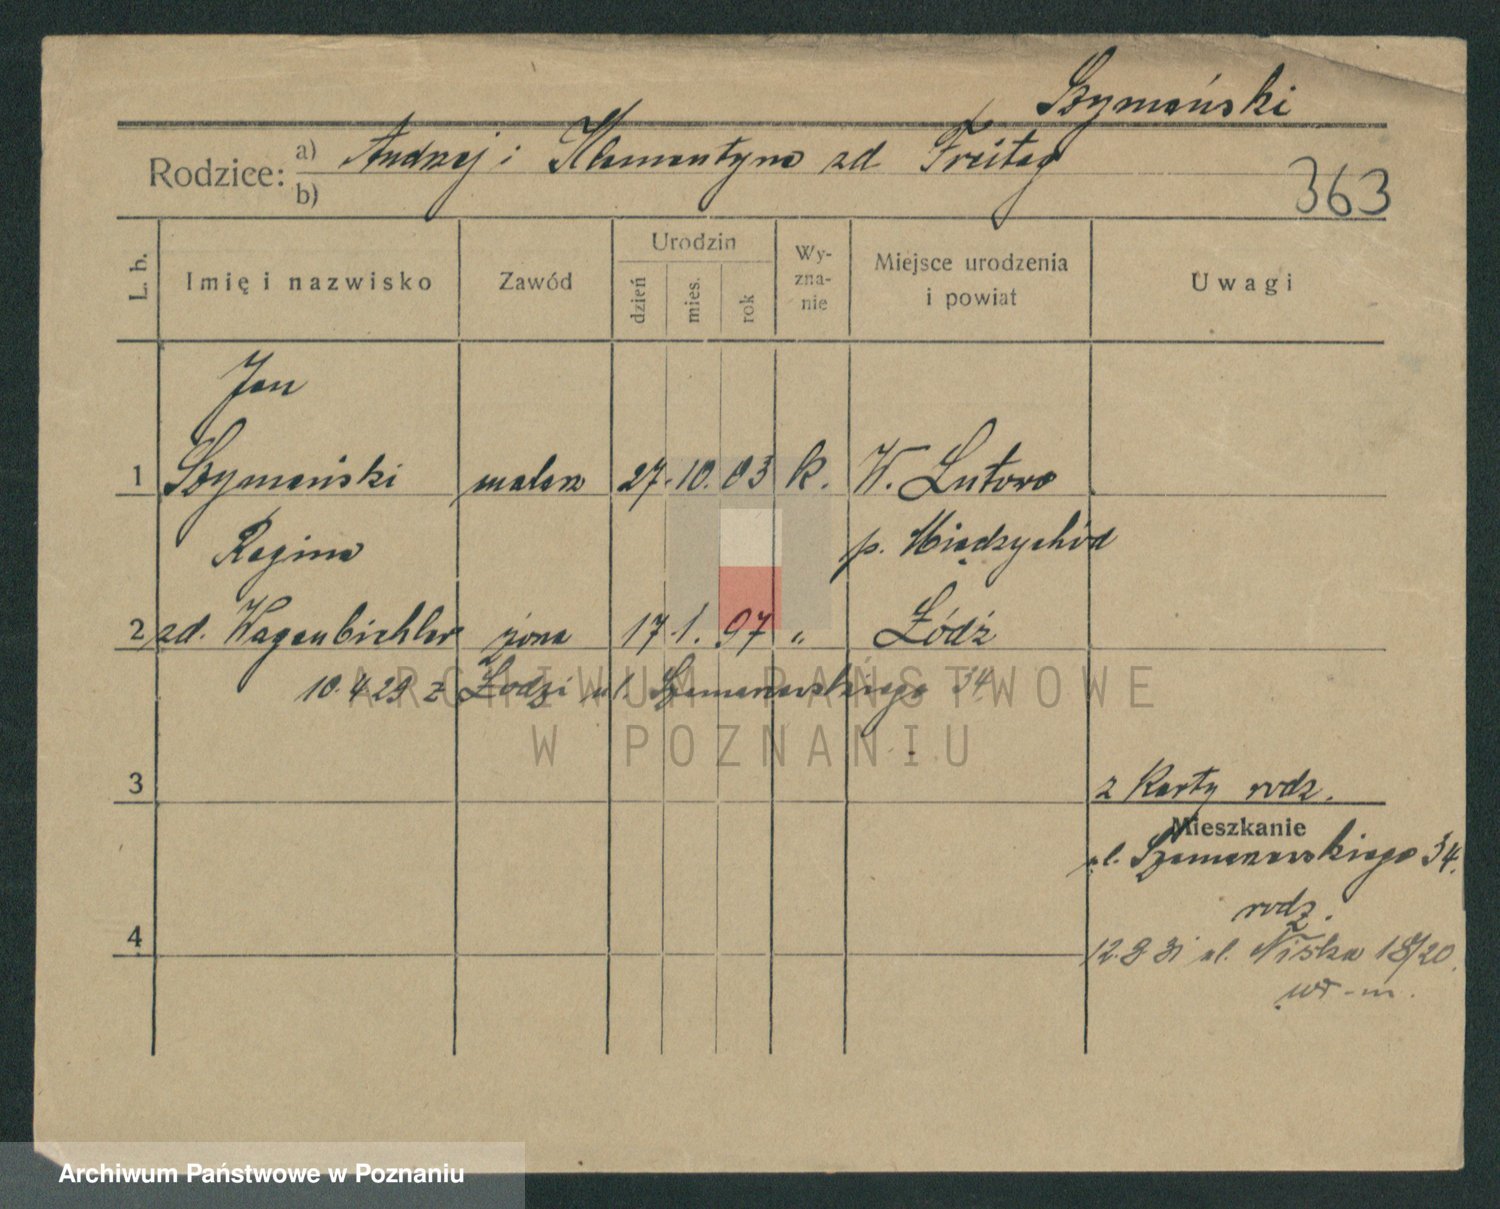 Szymański
Rodzice: a) Andrzej i Klementyna zd Freitag
b)
363
L. b.
Imię i nazwisko
Zawód
Urodzin
dzień
mies.
rok
Wy-
zna-
nie
Miejsce urodzenia
i powiat
Uwagi
Jan
1 Szymański malarz 27. 10. 03 k. W. Lutowo
Regina p. Międzychód
2 zd. Wagenbichler żona 17. 1. 97 „ Łódź
10.4.29 z Łodzi ul. Szamarzewskiego 34
ARCHIWUM PAŃSTWOWE
W POZNANIU
3
z Karty rodz.
Mieszkanie
ul. Szamarzewskiego 34.
rodz.
4
12.8.31 ul. Niska 18/20.
wł-m.
Archiwum Państwowe w Poznaniu